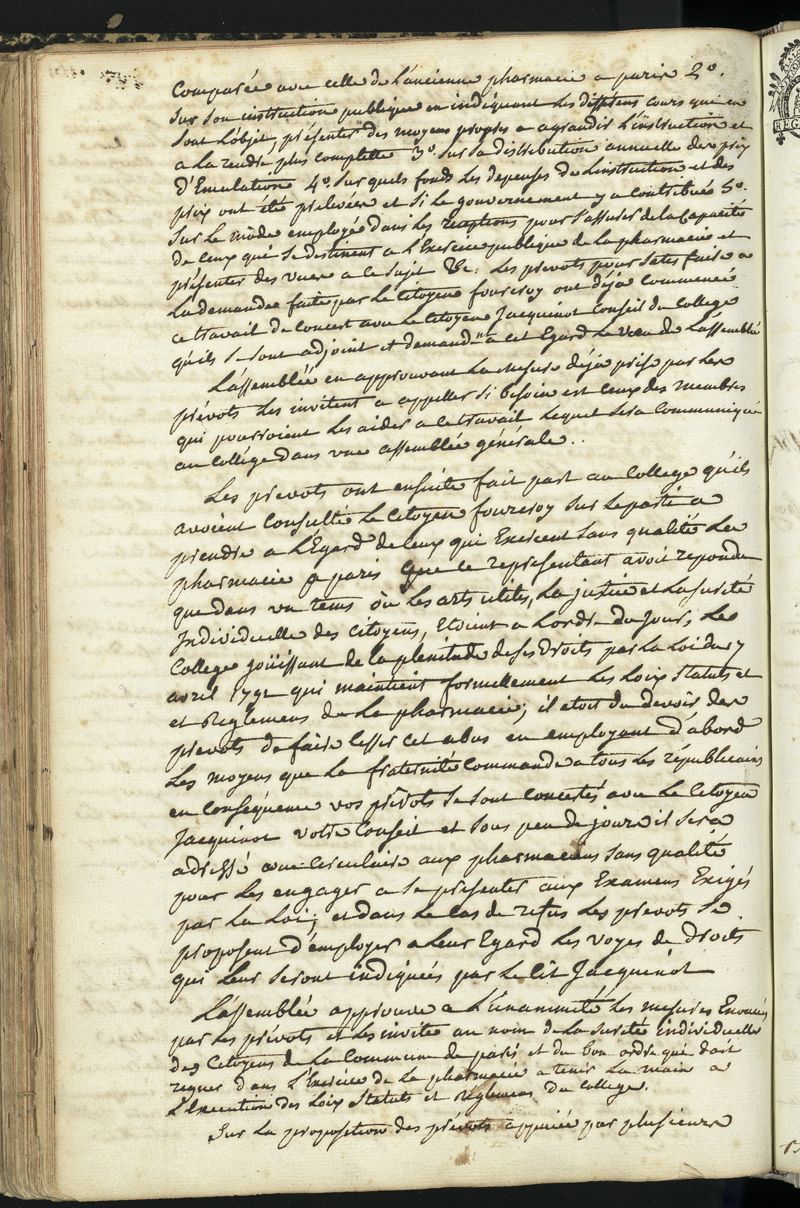 Comparée avec celle de l'ancienne pharmacie a paris 2°.
Sur son instruction publique en indiquant les différens cours qui en
sont l'objet, présenter des moyens propres a agrandir l'instruction et
a la rendre plus complette 3°. Sur la distribution annuelle des prix
d'Emulation 4°. Sur quels fonds les depenses de l'instruction et des
prix ont été prelevées et si le gouvernement y a contribuée 5°.
Sur le mode employée dans les receptions pour s'assurer de la capacité
de ceux qui se destinent a l'Exercice publique de la pharmacie et
présenter des vues a ce sujet &c. Les prevots pour satisfaire a
la demandee faite par le Citoyen fourcroy ont déja commencé
ce travail de concert avec le Citoyen Jacquinot Conseil du College
qu'ils se sont adjoint et demand a cet Egard le voeu de l'assemblée
L'assemblée en approuvant la mesure déja prise par les
prévots les invitent a appeller si besoin est ceux des membres
qui pourroient les aider a ce travail lequel sera communiqué
au Collége dans une assemblée générale..
Les prevots ont ensuite fait part au College qu'ils
avoient Consulté le Citoyen fourcroy sur le parti a
prendre a l'Egard de ceux qui Exercent sans qualité la
pharmacie a paris que ce representant avoit repondu
que dans un tems où les arts utiles, la justice et la sureté
Individuelle des Citoyens, Etoient a l'ordre du jour, le
College joüissant de la plenitude de ses droits par la Loi du 7
avril 1791 qui maintient formellement les Loix statuts et
et Reglemens de la pharmacie; il etoit du devoir des
prevots de faire cesser cet abus en employant d'abord
les moyens que la fraternité commande a tous les républicains
en conséquence vos prévots se sont concertés avec le Citoyen
Jacquinot votre Conseil et sous peu de jours il sera
adressé une Circulaire aux pharmaciens sans qualité
pour les engager a se presenter aux Examens Exigés
par la Loi; et dans le cas de refus les prevots se
proposent d'employer a leur Egard les voyes de Droits
qui leur seront indiquées par le Cit Jacquinot
L'assemblée approuve a l'unanimité les mesures Enoncées
par les prévots et les invite au nom de la sureté individuelle
des Citoyens de la Commune de paris et du bon ordre qui doit
regner dans l'Exercice de la pharmacie a tenir la main a
l'execution des Loix statuts et Reglemens du College.
Sur la proposition des prévots appuiée par plusieurs